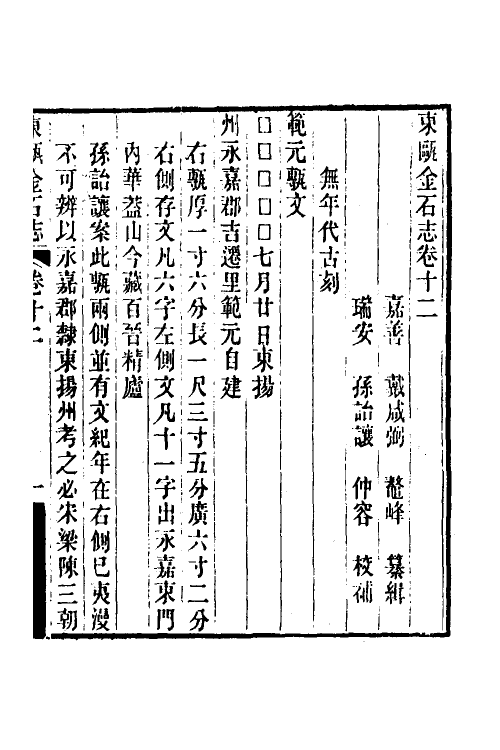 東甌金石志卷十二
嘉善　戴咸弼　鼇峰　纂緝
瑞安　孫詒讓　仲容　校補
無年代古刻
範元甎文
□□□□□□七月廿日東揚
州永嘉郡吉遷里範元自建
右甎厚一寸六分長一尺三寸五分廣六寸二分
右側存文凡六字左側文凡十一字出永嘉東門
內華葢山今藏百晉精廬
孫詒讓案此甎兩側並有文紀年在右側巳夷漫
不可辨以永嘉郡隸東揚州考之必宋梁陳三朝
東甌金石志　卷十二　一